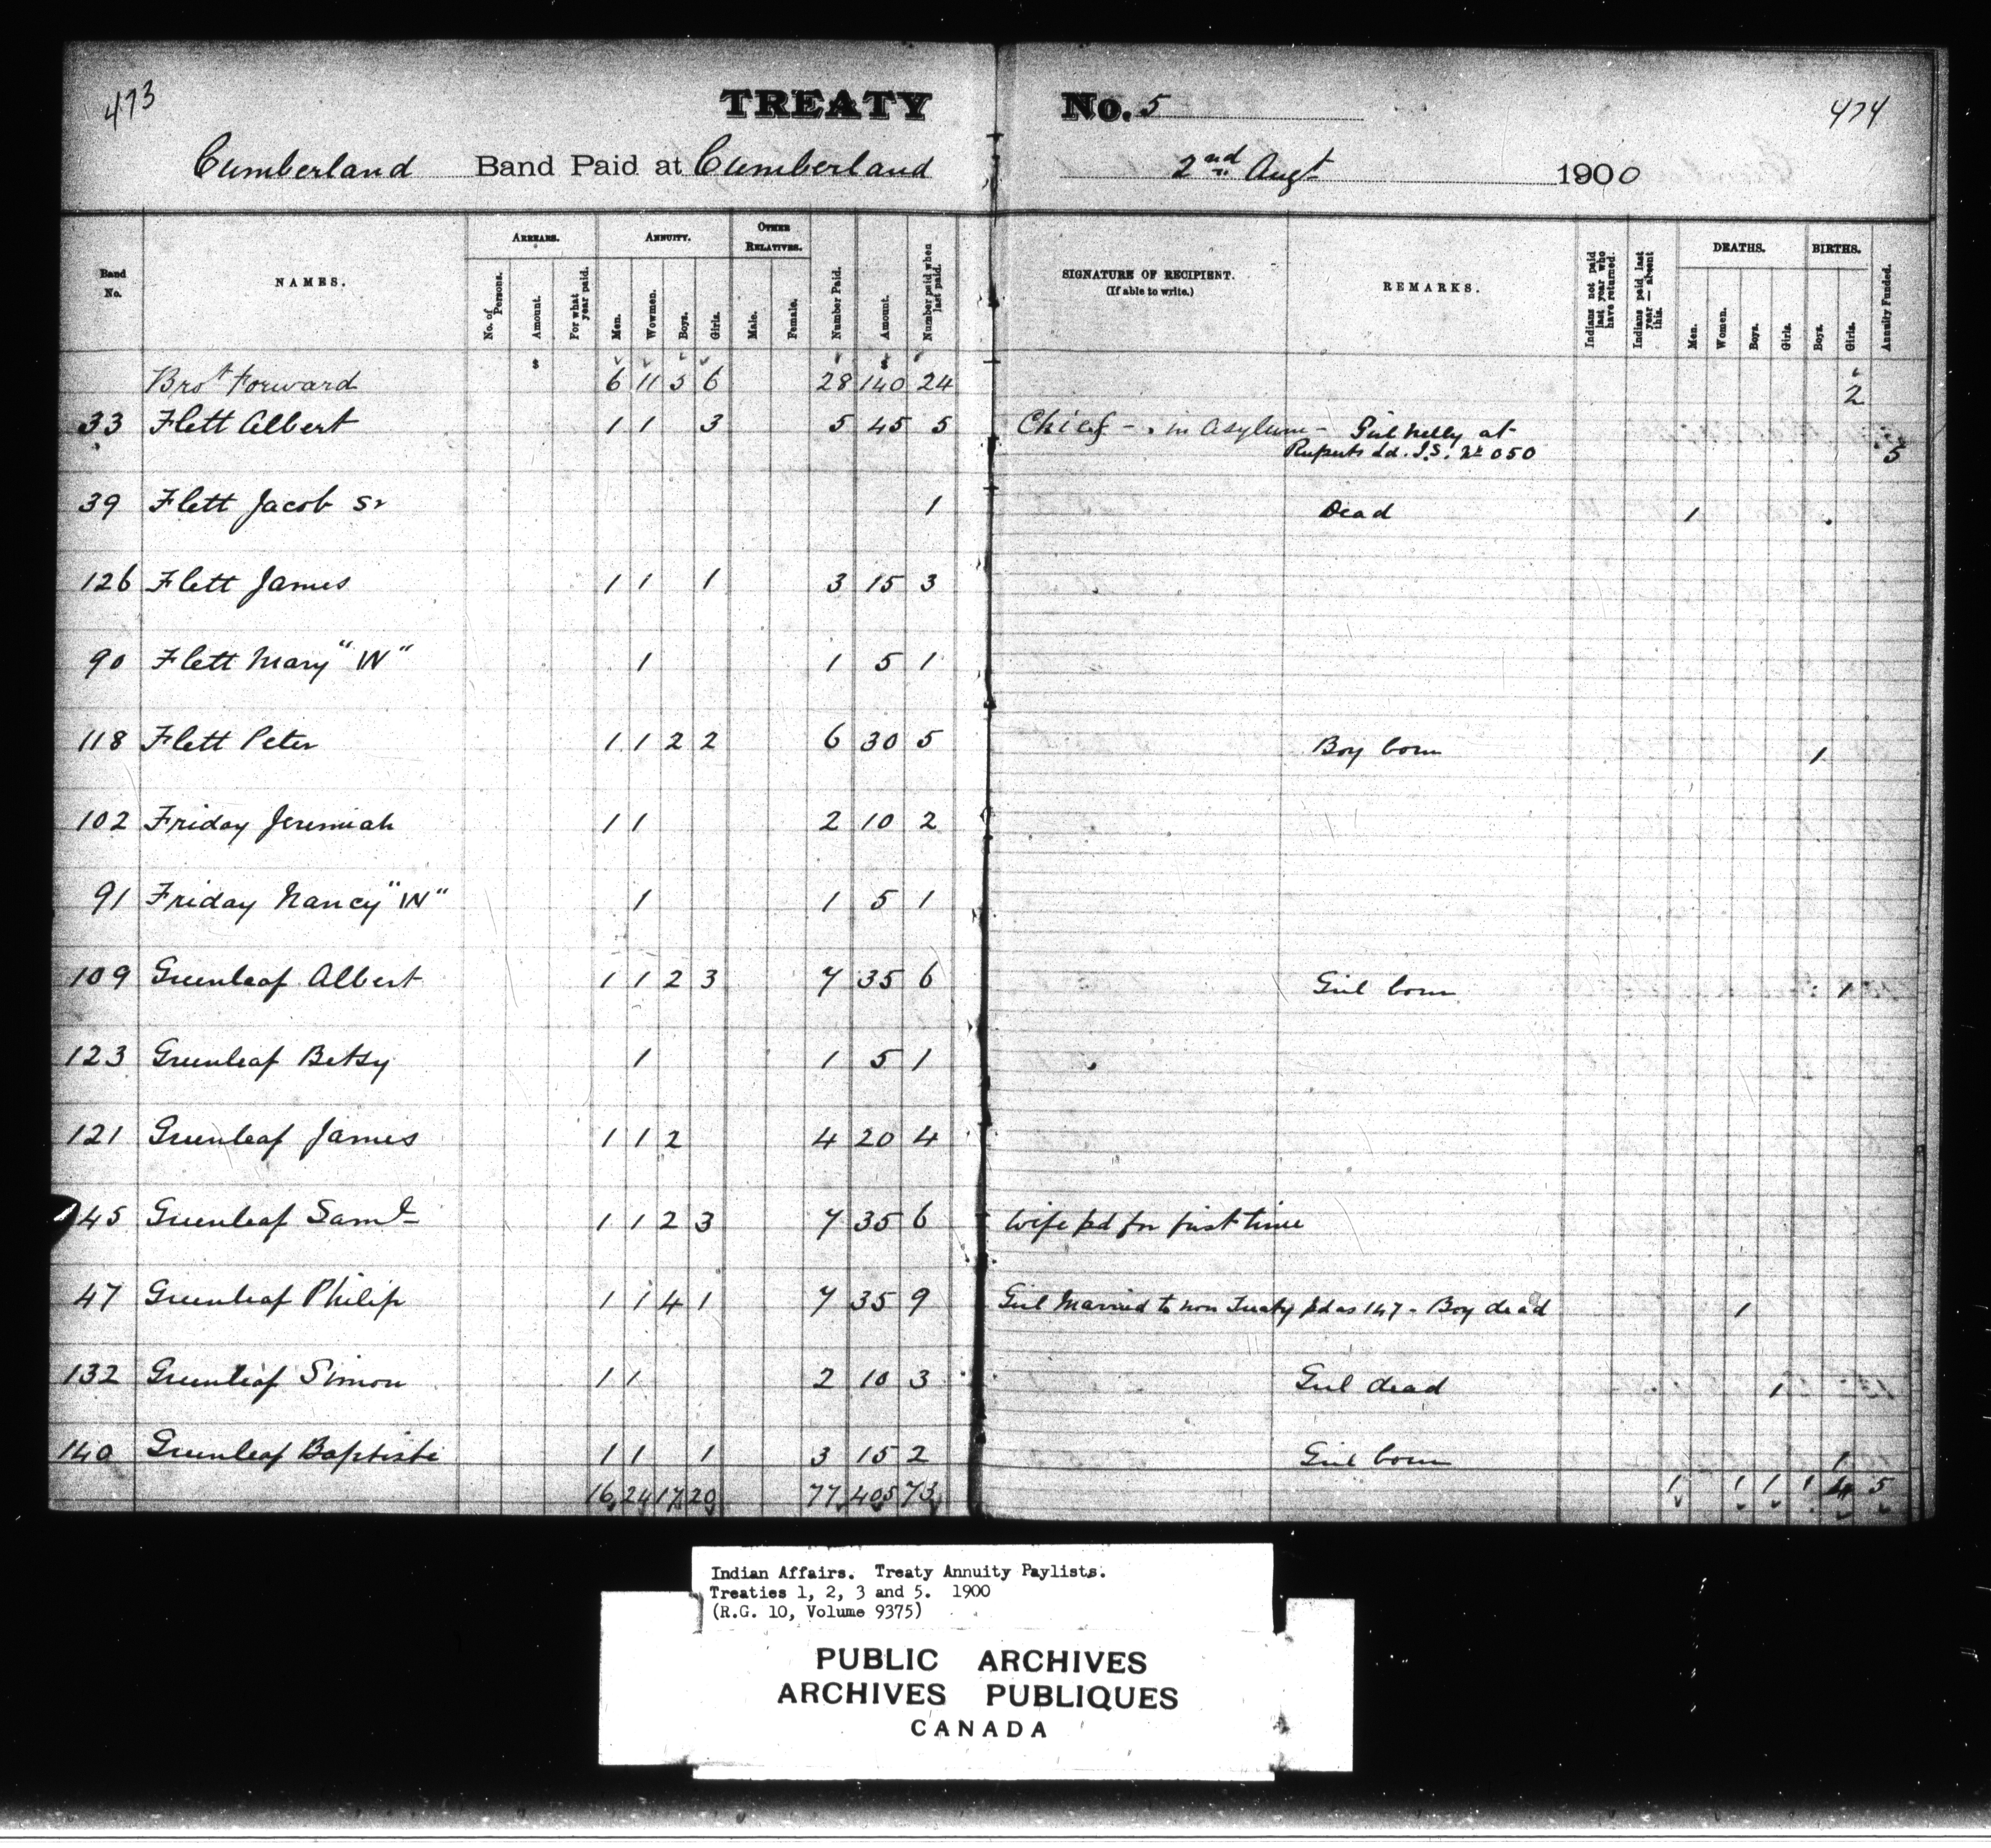 473 TREATY No. 5 474
Cumberland Band Paid at Cumberland 2nd Augt 1900
Band No. NAMES. ARREARS. No. of Persons. Amount. For what year paid. ANNUITY. Men. Wowmen. Boys. Girls. OTHER RELATIVES. Male. Female. Number Paid. Amount. Number paid when last paid. SIGNATURE OF RECIPIENT. (If able to write.) REMARKS. Indians not paid last year who have returned. Indians paid last year — absent this. DEATHS. Men. Women. Boys. Girls. BIRTHS. Boys. Girls. Annuity Funded.
Brot Forward 6 11 5 6 28 140 24 2
33 Flett Albert 1 1 3 5 45 5 Chief - in Asylum - Girl Nelly at
Ruperts Ld. I.S. No 050 5
39 Flett Jacob Sr 1 Dead 1
126 Flett James 1 1 1 3 15 3
90 Flett Mary "W" 1 1 5 1
118 Flett Peter 1 1 2 2 6 30 5 Boy born 1
102 Friday Jeremiah 1 1 2 10 2
91 Friday Nancy "W" 1 1 5 1
109 Greenleaf Albert 1 1 2 3 7 35 6 Girl born 1
123 Greenleaf Betsy 1 1 5 1
121 Greenleaf James 1 1 2 4 20 4
145 Greenleaf Saml 1 1 2 3 7 35 6 Wife pd for first time
47 Greenleaf Philip 1 1 4 1 7 35 9 Girl Married to non Treaty pd as 147 - Boy dead 1
132 Greenleaf Simon 1 1 2 10 3 Girl dead 1
140 Greenleaf Baptiste 1 1 1 3 15 2 Girl born 1
16 24 17 20 77 405 73 1 1 1 1 4 5
Indian Affairs. Treaty Annuity Paylists.
Treaties 1, 2, 3 and 5. 1900
(R.G. 10, Volume 9375)
PUBLIC ARCHIVES
ARCHIVES PUBLIQUES
CANADA